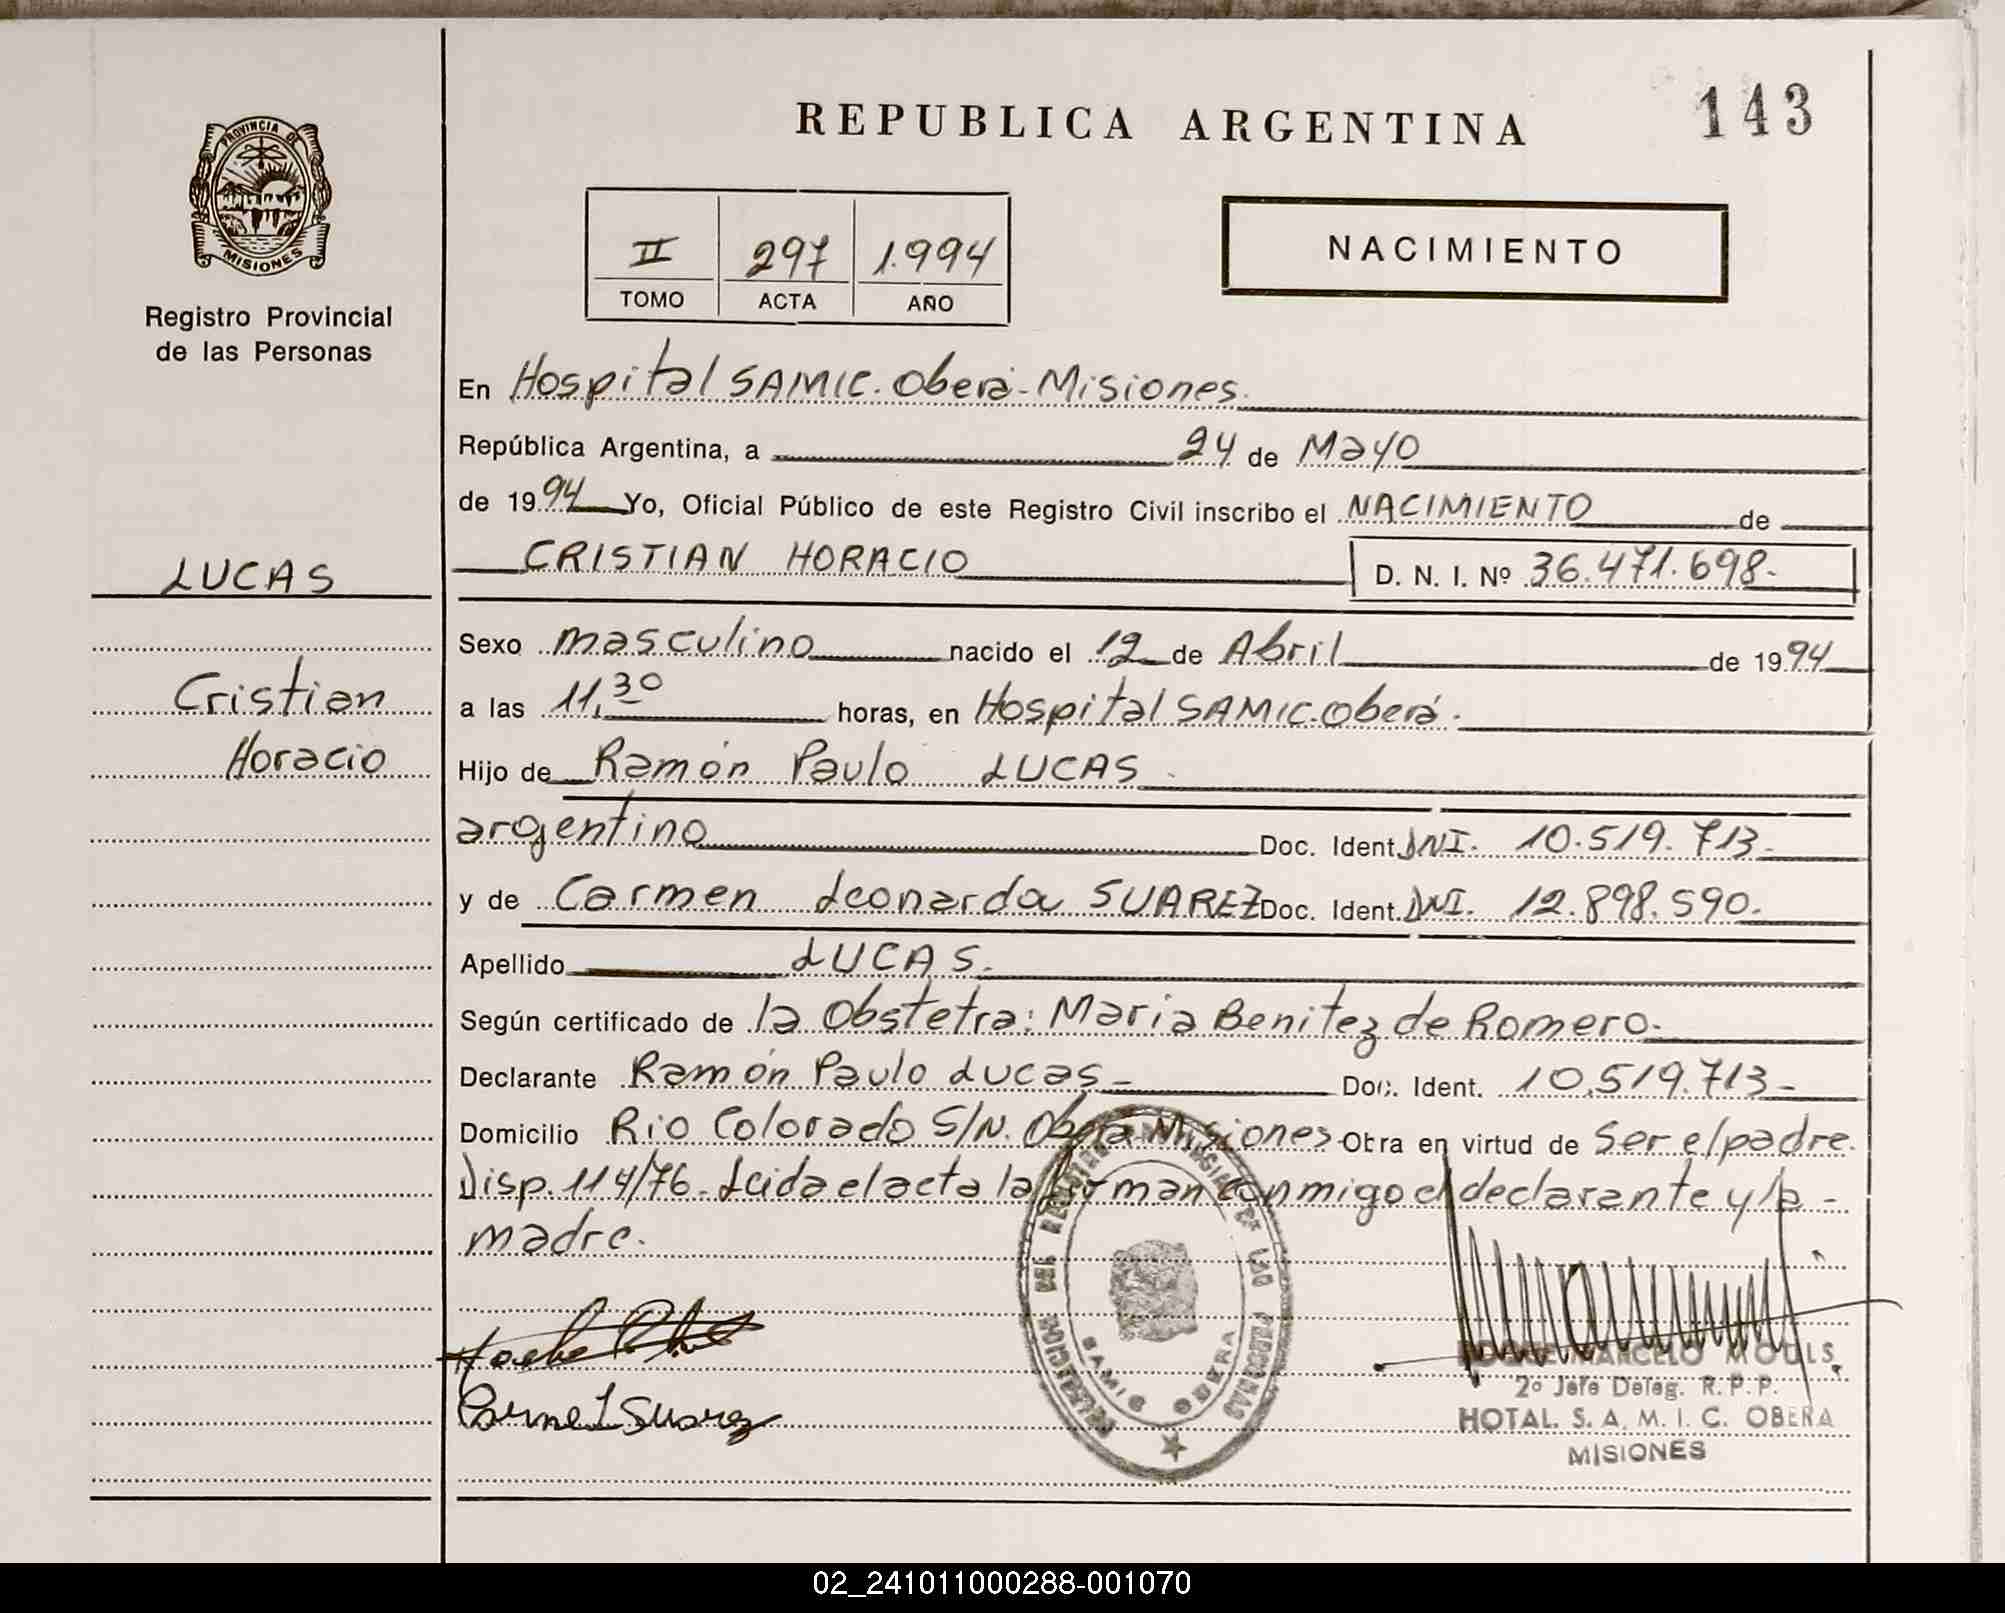 REPUBLICA ARGENTINA
143
PROVINCIA DE
MISIONES
Registro Provincial
de las Personas
II 297 1.994
TOMO ACTA AÑO
NACIMIENTO
En Hospital SAMIC. Oberá - Misiones.
República Argentina, a 24 de Mayo
de 1994 Yo, Oficial Público de este Registro Civil inscribo el NACIMIENTO de
CRISTIAN HORACIO D. N. I. Nº 36.471.698.-
LUCAS
Cristian
Horacio
Sexo masculino nacido el 12 de Abril de 1994
a las 11,30 horas, en Hospital SAMIC. Oberá.
Hijo de Ramón Paulo LUCAS.
argentino Doc. Ident. DNI. 10.519.713.-
y de Carmen Leonarda SUAREZ Doc. Ident. DNI. 12.898.590.
Apellido LUCAS.
Según certificado de la Obstetra: Maria Benitez de Romero.-
Declarante Ramón Paulo Lucas - Doc. Ident. 10.519.713-
Domicilio Rio Colorado S/N. Oberá Misiones Obra en virtud de Ser el padre.
Disp. 114/76. Leida el acta la firman conmigo el declarante y la -
madre.
Carme L Suarez
DELEGACION DEL REGISTRO PROVINCIAL DE LAS PERSONAS
SAMIC OBERA
MARCELO
2º Jefe Deleg. R. P. P.
HOTAL. S. A. M. I. C. OBERA
MISIONES
02_241011000288-001070